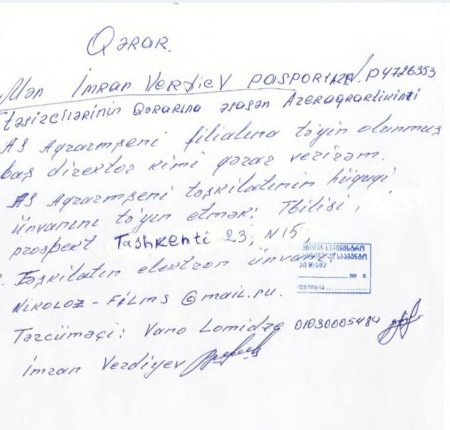 Qərar.
Mən İmran Verdiev pasport aze. P4726353
təsizcilərinin Qərarına əsasən Azeraqrarlikinti
AS Aqrarmşeni filialına təyin olunmuş
baş direktor kimi qərar verirəm.
AS Aqrarmşeni təşkilatının hüquqi
ünvanını təyin etmək: Tbilisi,
prospekt Tashkenti 23, N15,
Təşkilatın elektron ünvanı
Nikoloz-films@mail.ru.
Tərcüməçi: Vano Lomidze 01030005484
İmran Verdiyev